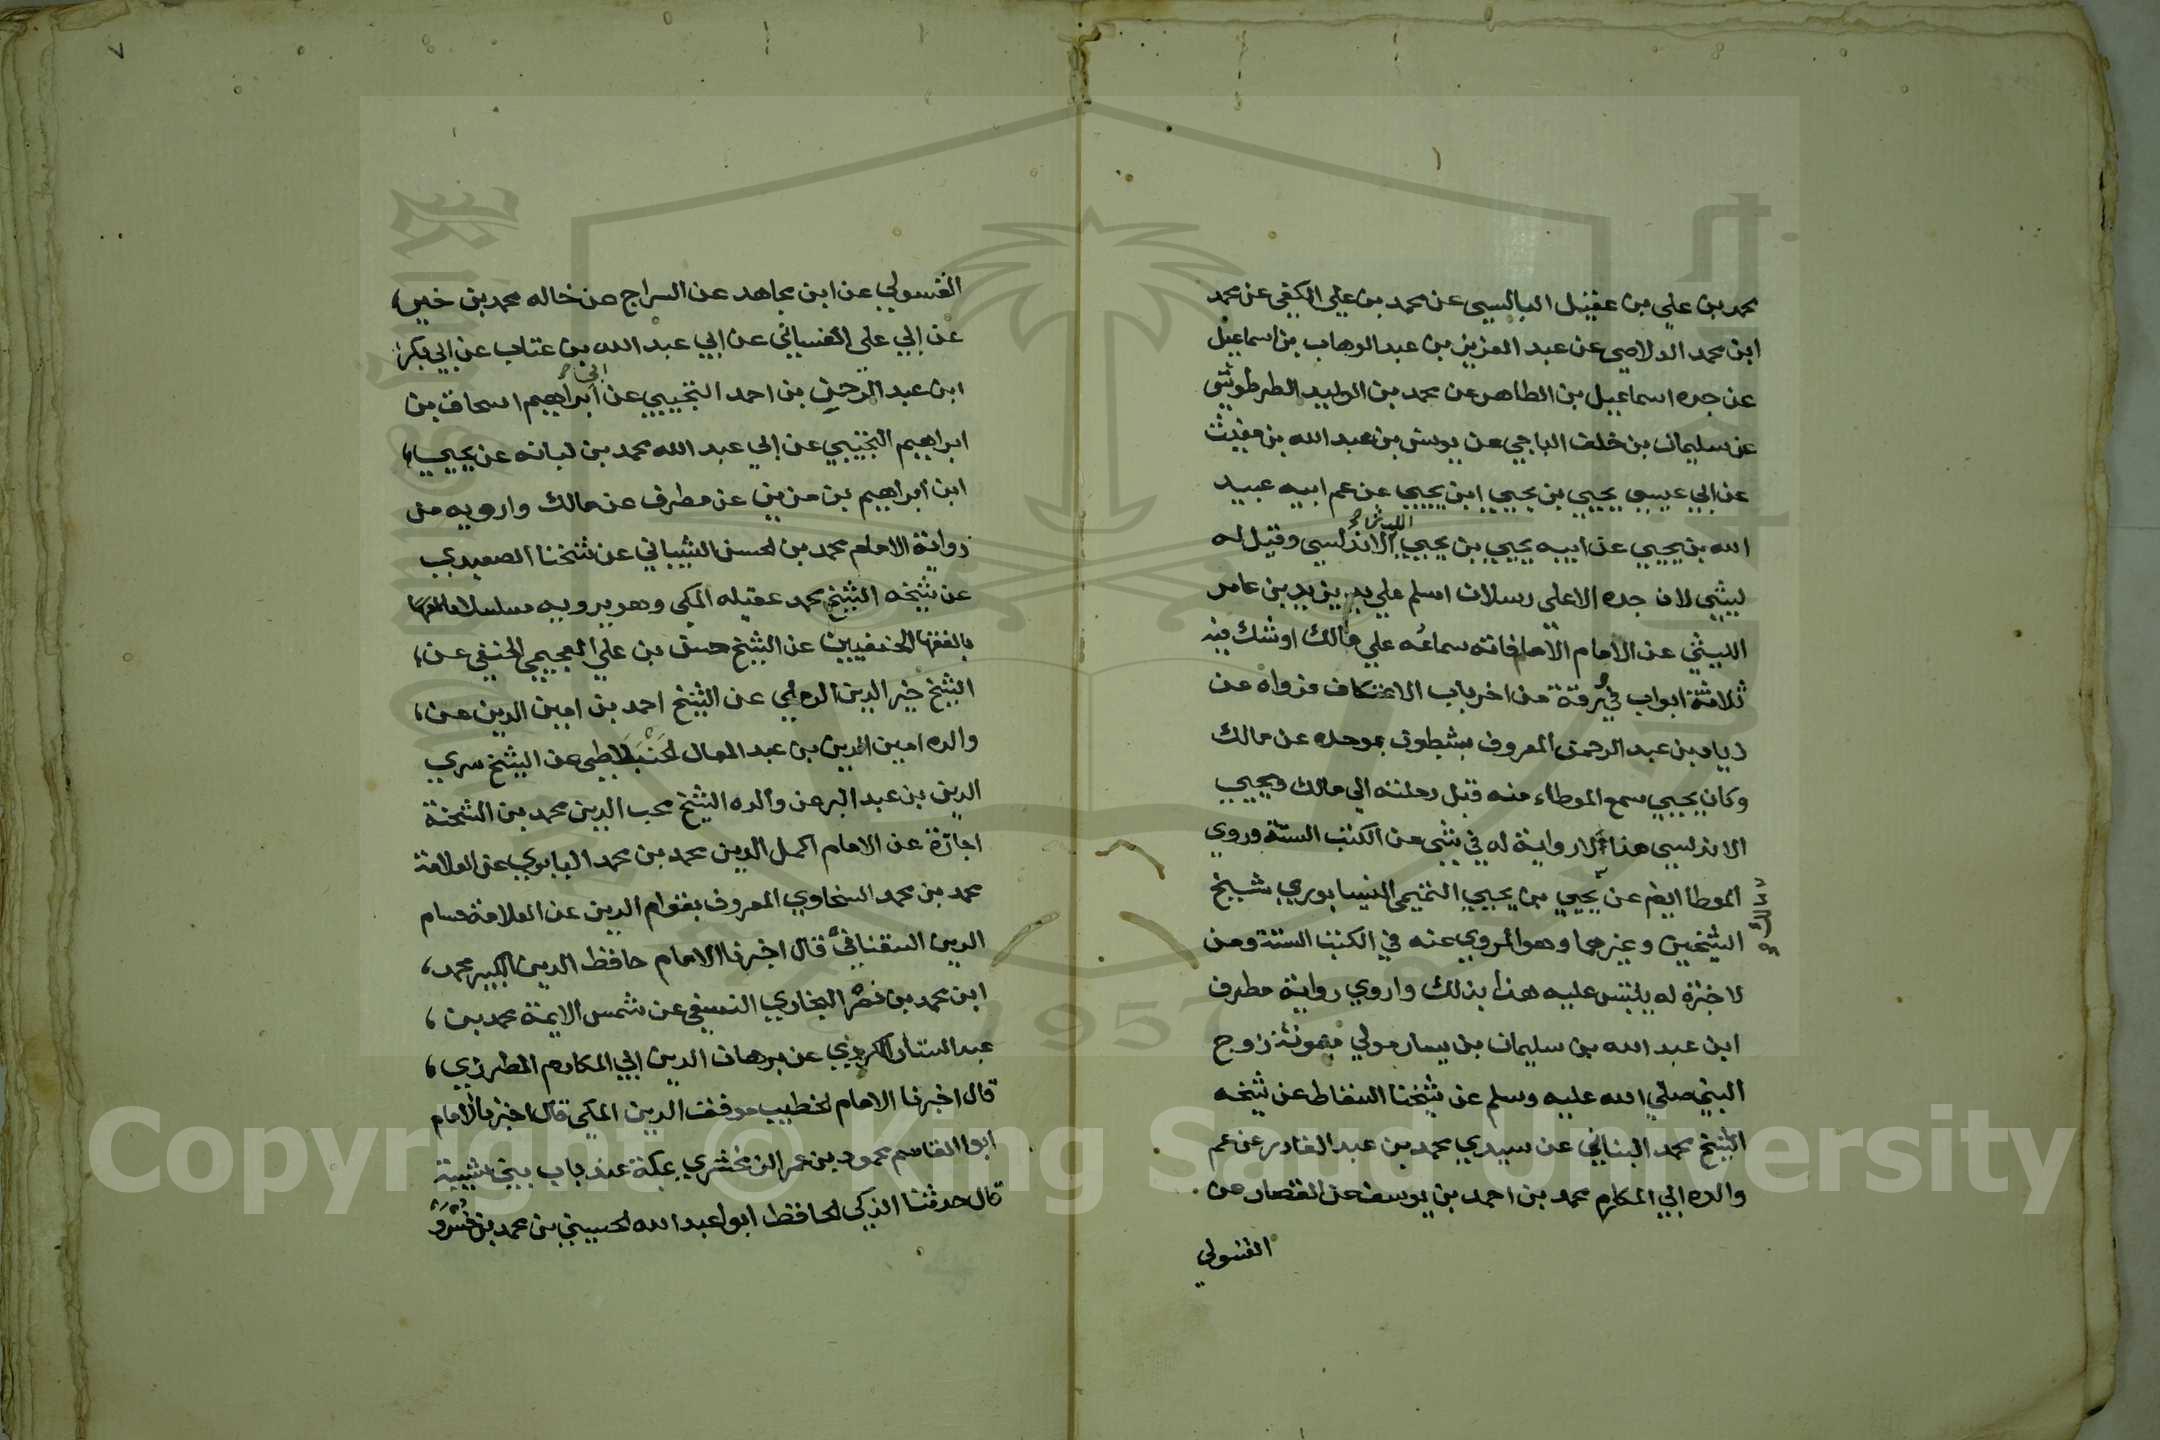 محمد بن علي بن عقيل البالسي عن محمد بن علي الكفي عن محمد
ابن محمد الدلاصي عن عبد العزيز بن عبد الوهاب بن اسماعيل
عن جده اسماعيل بن الطاهر عن محمد بن الوليد الطرطوشي
عن سليمان بن خلف الباجي عن يونس بن عبد الله بن مغيث
عن ابي عيسي يحيي بن يحيي ابن يحيي عن عم ابيه عبيد
الله بن يحيي عن ابيه يحيي بن يحيي الليثي الاندلسي وقيل له
ليثي لان جده الاعلي رسلان اسلم علي يد يزيد بن عامر
الليثي عن الامام الامام فاته سماعه علي مالك او شك فيه
ثلاثة ابواب في ورقة من اخر باب الاعتكاف فرواه عن
زياد بن عبد الرحمن المعروف بشبطون بموحده عن مالك
وكان يحيي سمع الموطاء منه قبل رحلته الي مالك ويحيي
الاندلسي هذا لا رواية له في شي من الكتب الستة وروي
الموطا ايضا عن يحيي بن يحيي التميمي النيسابوري شيخ
الشيخين وغيرهما وهو المروي عنه في الكتب الستة ومن
لا خبرة له يلتبس عليه هذا بذلك واروي رواية مطرف
ابن عبد الله بن سليمان بن يسار مولي ميمونة زوج
النبي صلي الله عليه وسلم عن شيخنا السقاط عن شيخه
الشيخ محمد البناني عن سيدي محمد بن عبد القادر عن عم
والده ابي المكارم محمد بن احمد بن يوسف عن القصار عن
الغسولي
٧
الغسولي عن ابن مجاهد عن السراج عن خاله محمد بن خير
عن ابي علي الغساني عن ابي عبد الله بن عتاب عن ابي بكر
ابن عبد الرحمن بن احمد التجيبي عن ابي ابراهيم اسحاق بن
ابراهيم التجيبي عن ابي عبد الله محمد بن لبانه عن يحيي
ابن ابراهيم بن مزين عن مطرف عن مالك وارويه من
رواية الامام محمد بن الحسن الشيباني عن شيخنا الصعيدي
عن شيخه الشيخ محمد عقيله المكي وهو يرويه مسلسلا
بالفقها الحنفيين عن الشيخ حسن بن علي العجيمي الحنفي عن
الشيخ خير الدين الرملي عن الشيخ احمد بن امين الدين عن
والده امين الدين بن عبد العال الجنبلاطي عن الشيخ سري
الدين بن عبد البر عن والده الشيخ محب الدين محمد بن الشحنة
اجازة عن الامام اكمل الدين محمد بن محمد البابوي عن العلامة
محمد بن محمد السخاوي المعروف بقوام الدين عن العلامة حسام
الدين السقناقي قال اخبرنا الامام حافظ الدين الكبير محمد
ابن محمد بن نصر البخاري النسفي عن شمس الايمة محمد بن
عبد الستار الكردري عن برهان الدين ابي المكارم المطرزي
قال اخبرنا الامام الخطيب موفق الدين المكي قال اخبرنا الامام
ابو القاسم محمود بن عمر الزمخشري بمكة عند باب بني شيبة
قال حدثنا الزكي الحافظ ابوا عبد الله الحسيني بن محمد بن خسرو
Copyright © King Saud University
1957